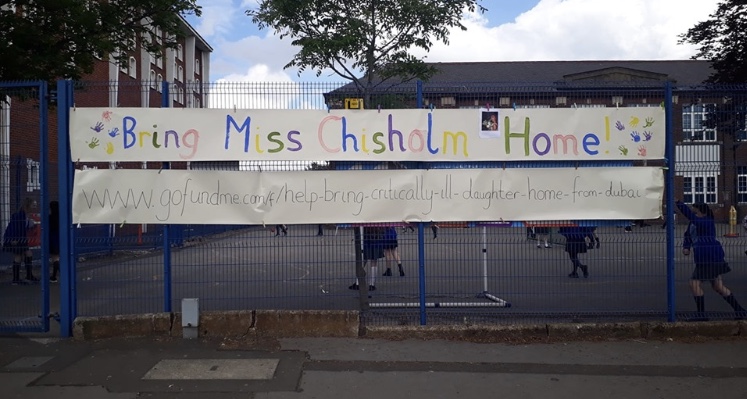 Bring Miss Chisholm Home!
www.gofundme.com/f/help-bring-critically-ill-daughter-home-from-dubai